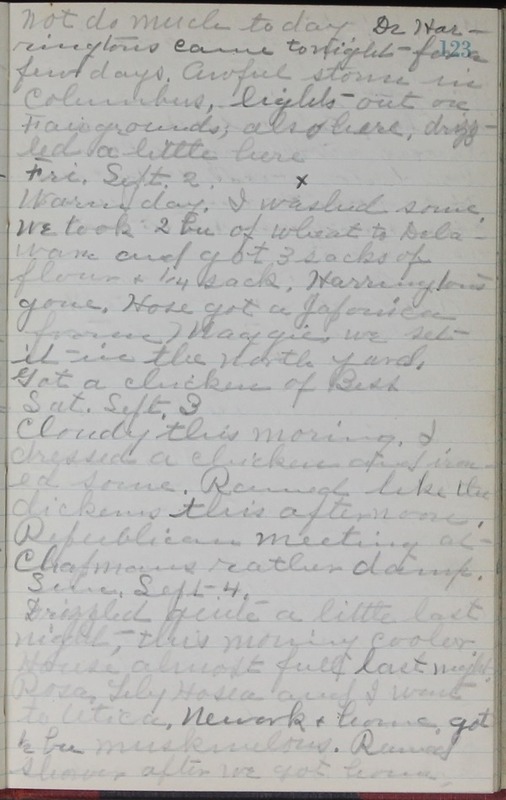 Not do much today Dr Har-
ringtons came tonight for a 123
few days. Awful storm in
Columbus, lights out on
Fairgrounds, also here, drizz-
led a little here
Fri. Sept. 2. x
Warm day. I washed some.
We took 2 bu of wheat to Dela-
ware and got 3 sacks of
flour & 1/4 sack. Harringtons
gone. Hose got a Japonica
from Maggie, we set
it in the north yard.
Got a chicken of Bess
Sat. Sept. 3
Cloudy this moring. I
dressed a chicken and iron-
ed some. Rained like the
dickens this afternoon.
Republican meeting at
Chapmans rather damp.
Sun. Sept 4.
Drizzled quite a little last
night, this moring cooler
House almost full last night
Rosa, Lily Hosea and I went
to Utica, Newark & home, got
½ bu muskmelons. Rained
shower after we got home.